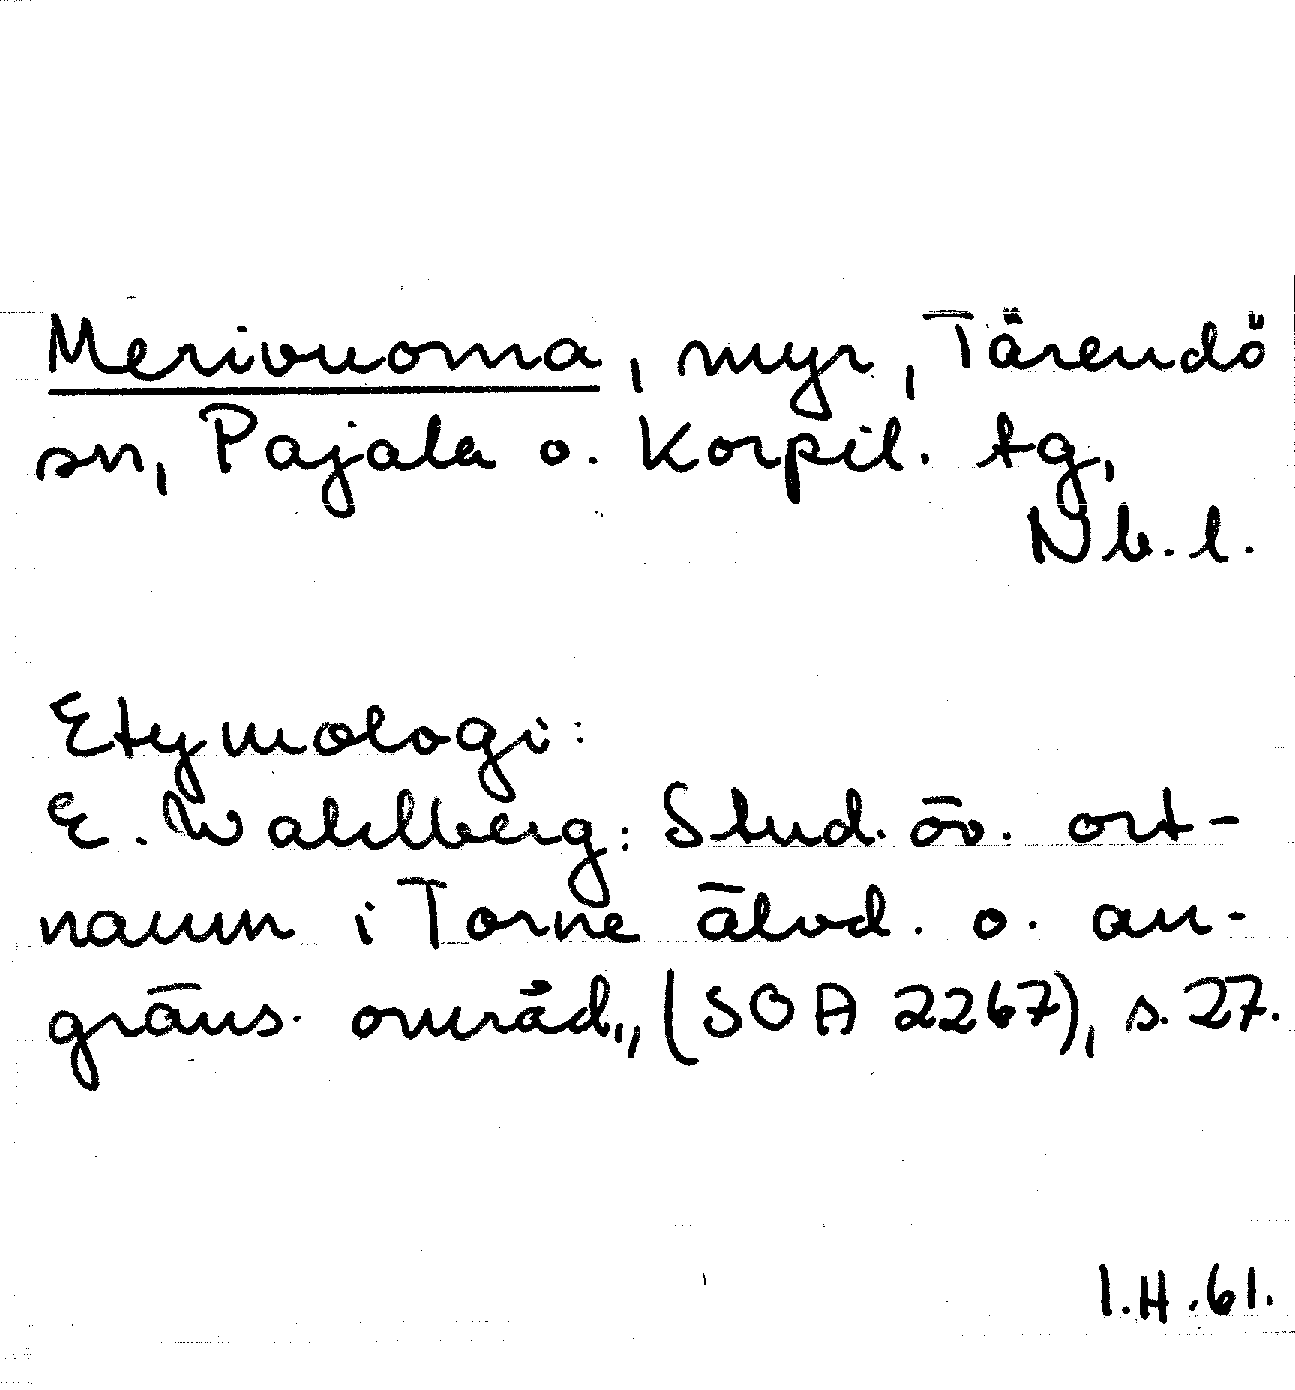 Merivuoma, myr, Tärendö
sn, Pajala o. Korpil. tg,
Nb.l.
Etymologi:
E. Wahlberg: Stud. öv. ort-
namn i Torne älvd. o. an-
gräns. områd., (SOA 2267), s. 27.
I.H.61.